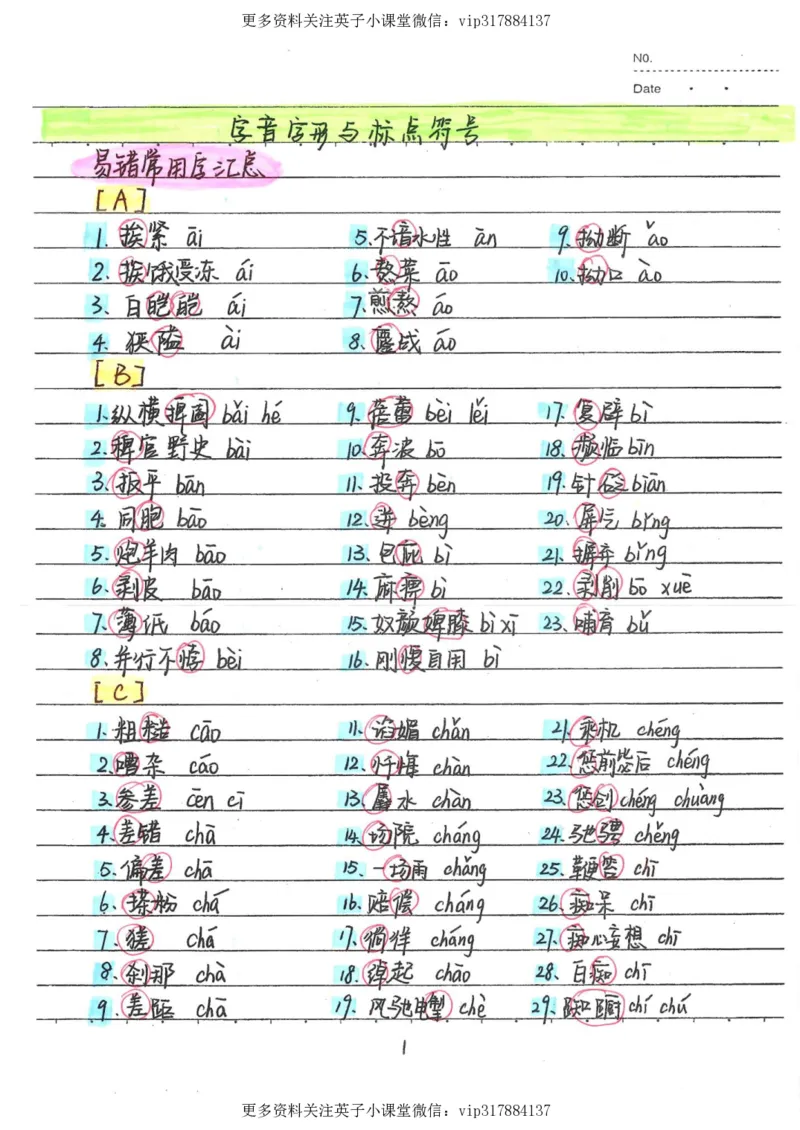 更多资料关注英子小课堂微信：vip317884137
NO.
Date
字音字形与标点符号
易错常用字汇总
[A]
1. 挨紧 āi 5.不谙水性 ān 9. 拗断 ǎo
2. 挨饿受冻 ái 6.熬菜 āo 10.拗口 ào
3. 白皑皑 ái 7.煎熬 áo
4. 狭隘 ài 8.鏖战 áo
[B]
1.纵横捭阖 bǎi hé 9. 蓓蕾 bèi lěi 17. 复辟 bì
2.稗官野史 bài 10.奔波 bō 18. 濒临 bīn
3.扳平 bān 11. 投奔 bèn 19.针砭 biān
4. 同胞 bāo 12.迸 bèng 20. 屏气 bǐng
5.炮羊肉 bāo 13.包庇 bì 21. 摒弃 bìng
6.剥皮 bāo 14.麻痹 bì 22.剥削 bō xuē
7.薄纸 báo 15.奴颜婢膝 bì xī 23.哺育 bǔ
8.并行不悖 bèi 16.刚愎自用 bì
[C]
1. 粗糙 cāo 11.谄媚 chǎn 21.乘机 chéng
2.嘈杂 cáo 12.忏悔 chàn 22.惩前毖后 chéng
3.参差 cēn cī 13.羼水 chàn 23.惩创 chéng chuàng
4.差错 chā 14.场院 cháng 24.驰骋 chěng
5.偏差 chā 15.一场雨 cháng 25.鞭笞 chī
6.搽粉 chá 16.赔偿 cháng 26.痴呆 chī
7.猹 chá 17.徜徉 cháng 27.痴心妄想 chī
8.刹那 chà 18.绰起 chāo 28.白痴 chī
9.差距 chā 19.风驰电掣 chè 29.踟蹰 chí chú
1
更多资料关注英子小课堂微信：vip317884137